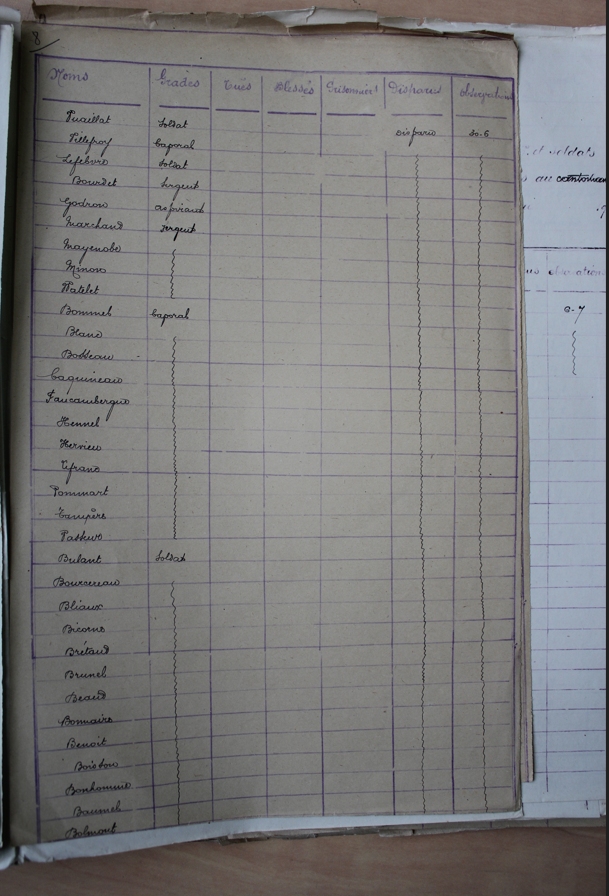 8
Noms Grades Tués Blessés Prisonniers Disparus Observations
Puaillat Soldat
Pillepoy Caporal Disparu 30-6
Lefebvre Soldat
Bourdet Sergent
Godron aspirant
Marchand sergent
Mayenobe
Minon
Patelet
Bommel Caporal
Blanc
Bosseau
Caquineau
Faucambergue
Hennel
Hervieu
Lefranc
Pommart
Tampère
Pasture
Bulant Soldat
Bourcereau
Bliaux
Bicorne
Brétaud
Brunel
Beaud
Bonnaire
Benoit
Boisson
Bonhomme
Baumel
Bolmont
et soldats
au
6-7